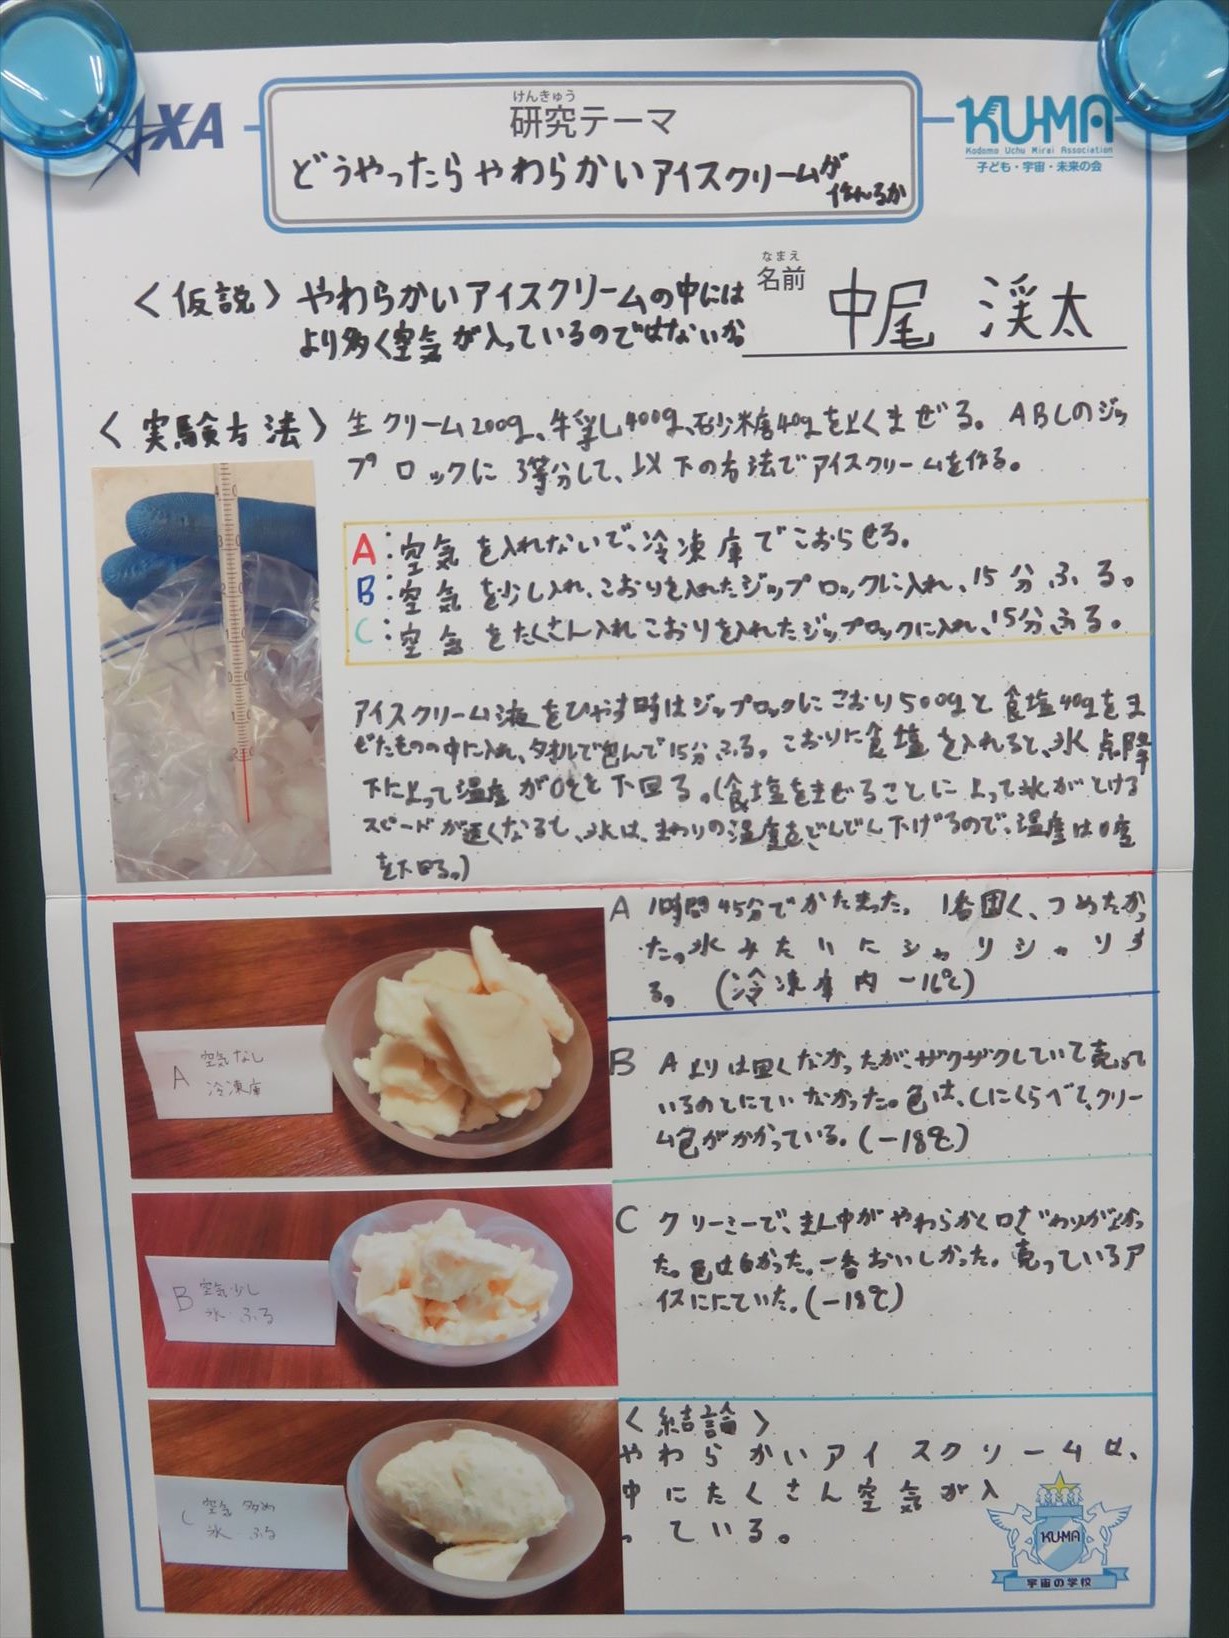 AXA
けんきゅう
研究テーマ
どうやったらやわらかいアイスクリームが
作れるか
KU-MA
Kodomo Uchu Mirai Association
子ども・宇宙・未来の会
<仮説> やわらかいアイスクリームの中には
より多く空気が入っているのではないか
なまえ
名前
中尾 渓太
<実験方法> 生クリーム200g、牛乳400g、砂糖40gをよくまぜる。ABCのジッ
プロックに3等分して、以下の方法でアイスクリームを作る。
A:空気を入れないで、冷凍庫でこおらせる。
B:空気を少し入れ、こおりを入れたジップロックに入れ、15分ふる。
C:空気をたくさん入れこおりを入れたジップロックに入れ、15分ふる。
アイスクリーム液をひやす時はジップロックにこおり500gと食塩40gをま
ぜたものの中に入れ、タオルで包んで15分ふる。こおりに食塩を入れると、氷点降
下によって温度が0℃を下回る。(食塩をまぜることによって氷がとける
スピードが速くなると、氷は、まわりの温度をどんどん下げるので、温度は0度
を下回る。)
A 1時間45分でかたまった。1番固く、つめたかっ
た。氷みたいにシャリシャリす
る。(冷凍庫内-16℃)
A 空気なし
冷凍庫
B Aよりは固くなかったが、ザクザクしていて売って
いるのとにていなかった。色は、Cにくらべて、クリー
ム色がかかっている。(-18℃)
B 空気少し
氷 ふる
C クリーミーで、まん中がやわらかく口ざわりがよかっ
た。色は白かった。一番おいしかった。売っているア
イスににていた。(-18℃)
C 空気 多め
氷 ふる
<結論>
やわらかいアイスクリームは、
中にたくさん空気が入
っている。
KU-MA
宇宙の学校